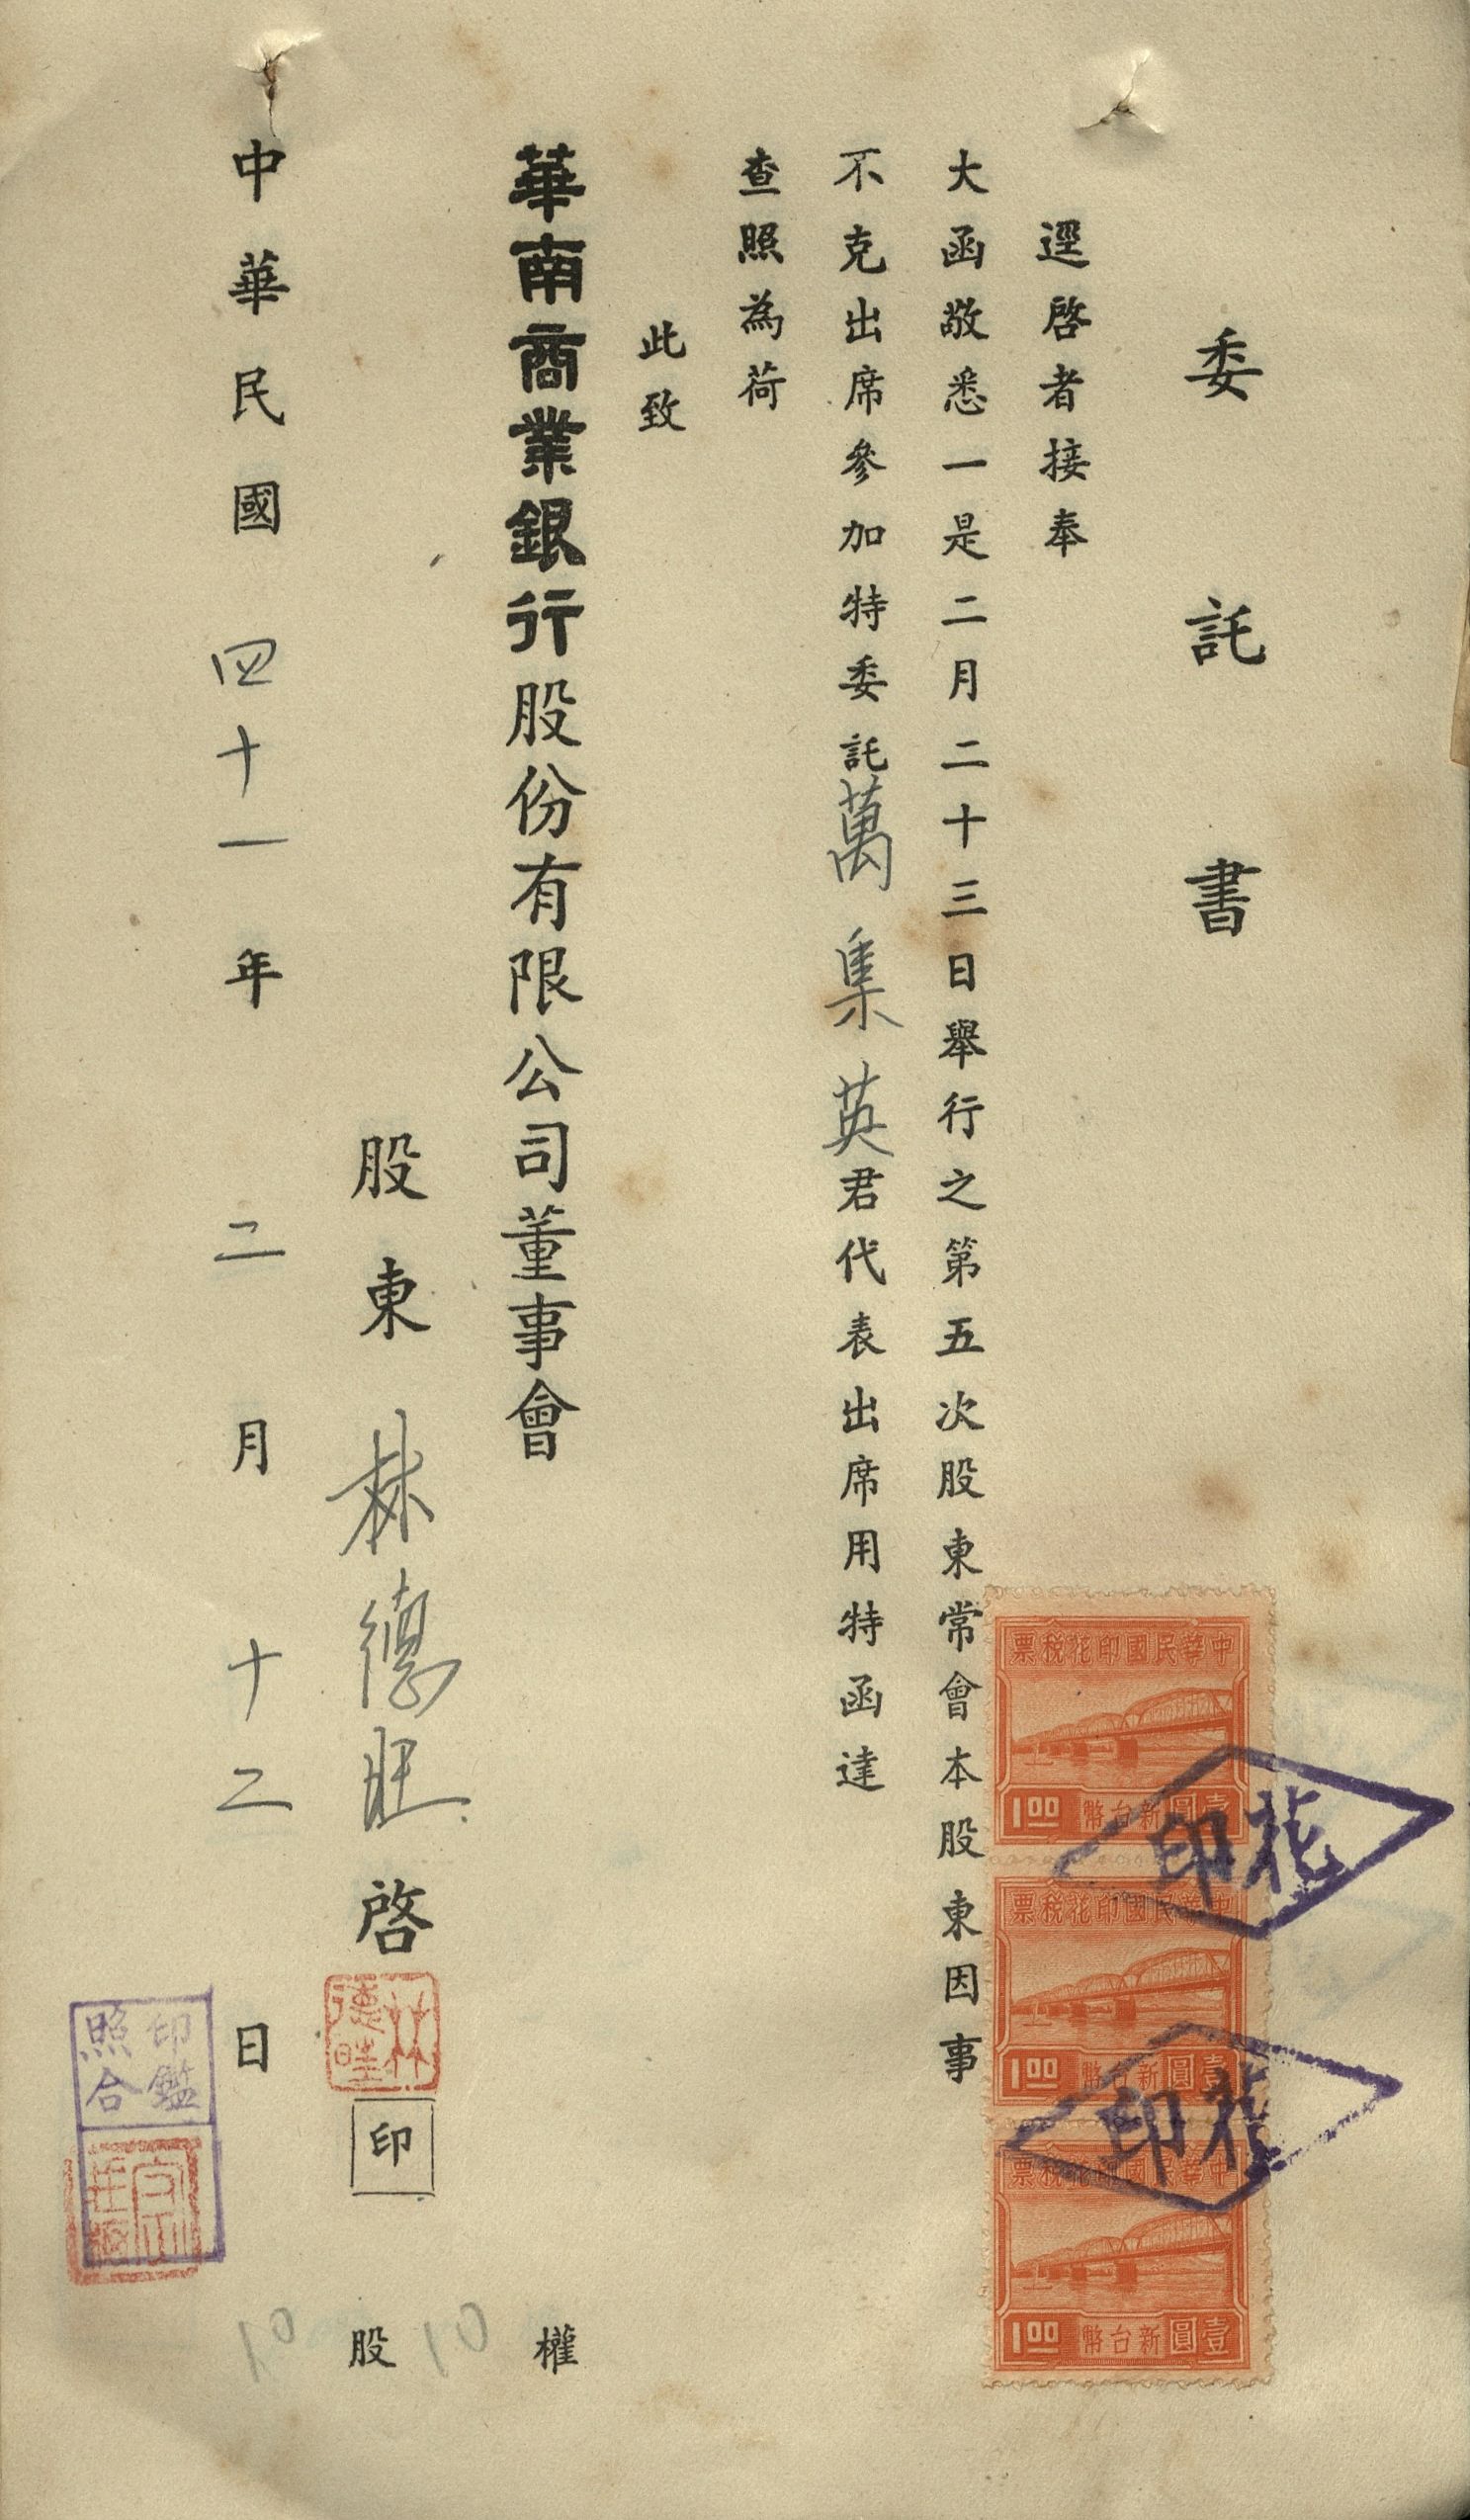 委託書
逕啓者接奉
大函敬悉一是二月二十三日舉行之第五次股東常會本股東因事
不克出席參加特委託萬集英君代表出席用特函達
查照為荷
此致
華南商業銀行股份有限公司董事會
股東 林德旺 啓
林德旺
印
中華民國四十一年二月十二日
權
股
印鑑
照合
票稅花印國民華中
1.00 幣台新圓壹
票稅花印國民華中
1.00 幣台新圓壹
票稅花印國民華中
1.00 幣台新圓壹
印花
印花